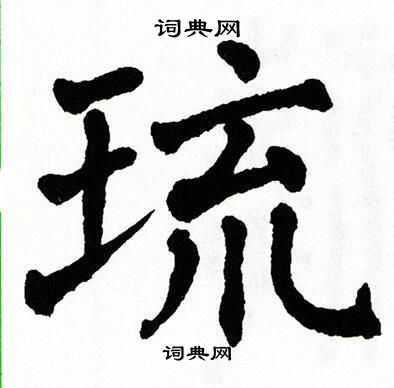 词典网
琉
词典网